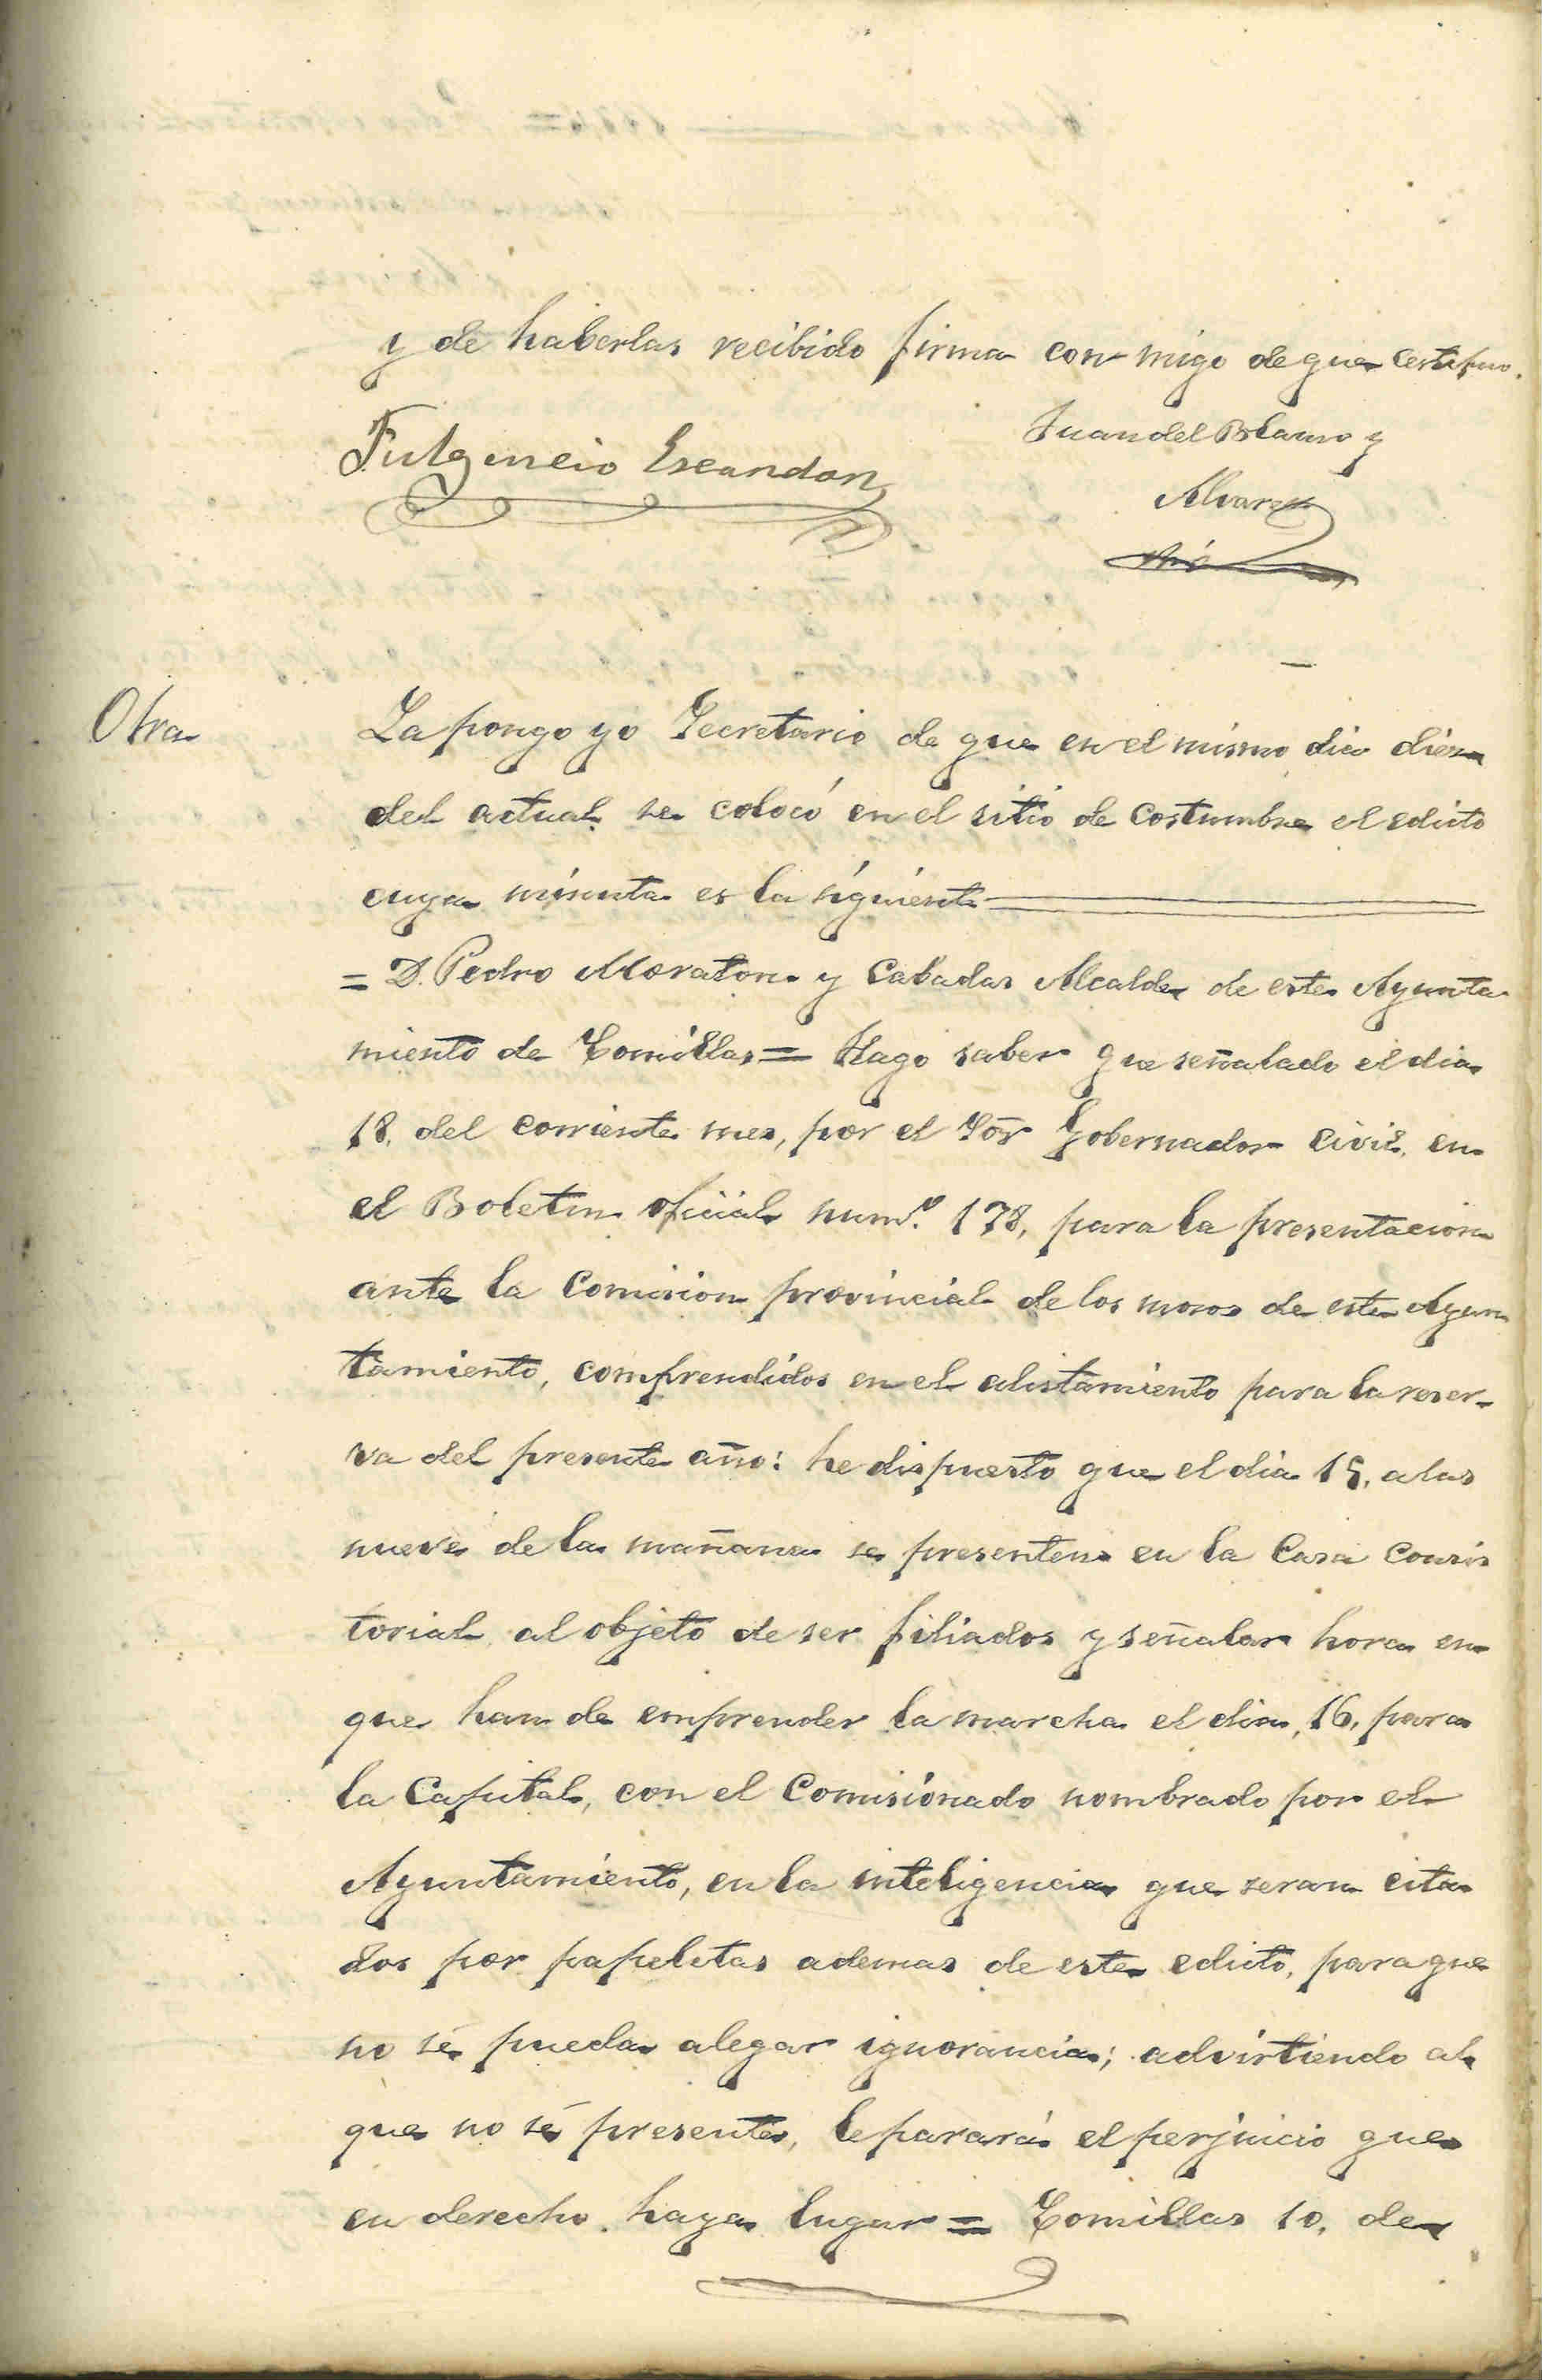 y de haberlas recibido firma con migo de que certifico.
Fulgencio Escandon
Juan del Blanco y
Alvarez
Srio
Otra
La pongo yo Secretario de que en el mismo dia diez
del actual se colocó en el sitio de costumbre el edicto
cuya minuta es la siguiente
= D. Pedro Moraton y Cabadas Alcalde de este Ayunta
miento de Comillas = Hago saber que señalado el dia
18, del corriente mes, por el Sōr Gobernador civil, en
el Boletin oficial num.º 178, para la presentacion
ante la Comision provincial de los mozos de este Ayun
tamiento, comprendidos en el alistamiento para la reser-
va del presente año: he dispuesto que el dia 15, a las
nueve de la mañana se presenten en la Casa Consis
torial al objeto de ser filiados y señalar hora en
que han de emprender la marcha el dia, 16, para
la Capital, con el Comisionado nombrado por el
Ayuntamiento, en la inteligencia que seran cita
dos por papeletas ademas de este edicto, para que
no sé pueda alegar ignorancia; advirtiendo al
que no sé presente, le parará el perjuicio que
en derecho haya lugar = Comillas 10, de